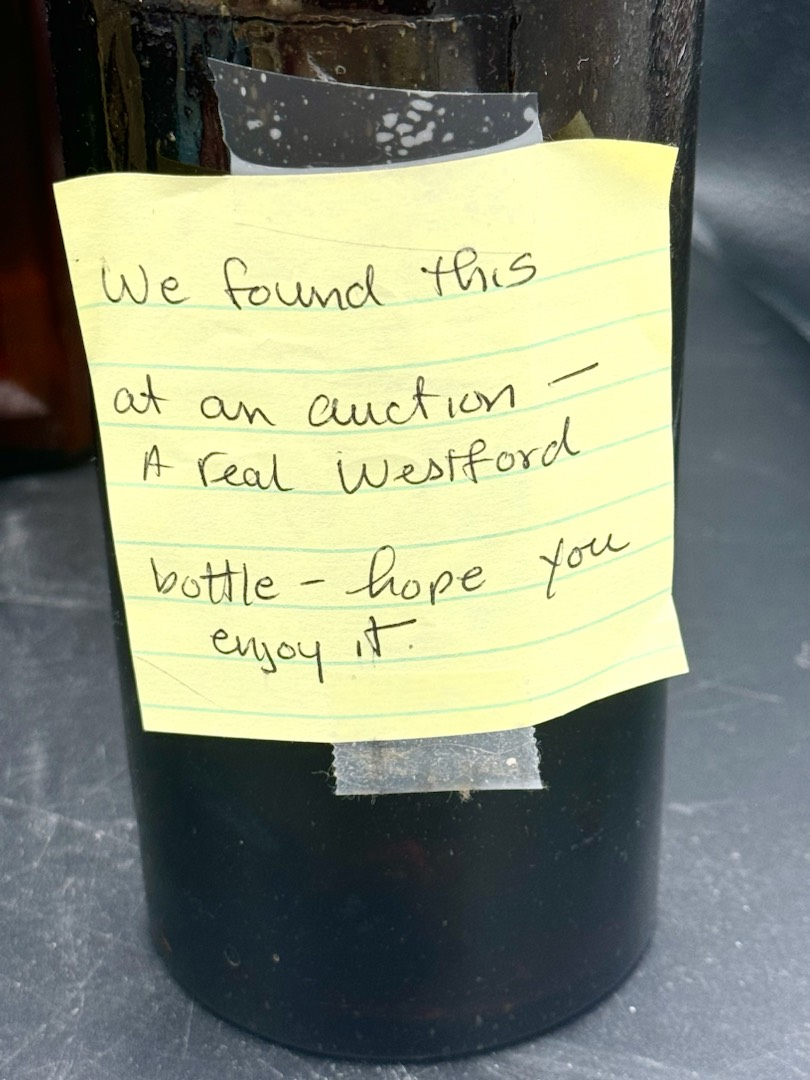 We found this
at an auction –
A real Westford
bottle – hope you
enjoy it.